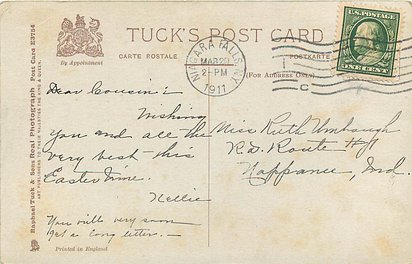 TUCK'S POST CARD
By Appointment
CARTE POSTALE
POSTKARTE
(For Address Only)
NIAGARA FALLS, N.Y.
MAR 29
2-PM
1911
C
U.S. POSTAGE
ONE CENT
Raphael Tuck & Sons Real Photograph Post Card E3754
ART PUBLISHERS TO THEIR MAJESTIES THE KING & QUEEN.
Dear Cousin:
Wishing
you and all the
very best this
Easter time.
Nellie
You will very soon
get a long letter.
Miss Ruth Umbaugh
R.D. Route #1
Nappanee, Ind.
Printed in England